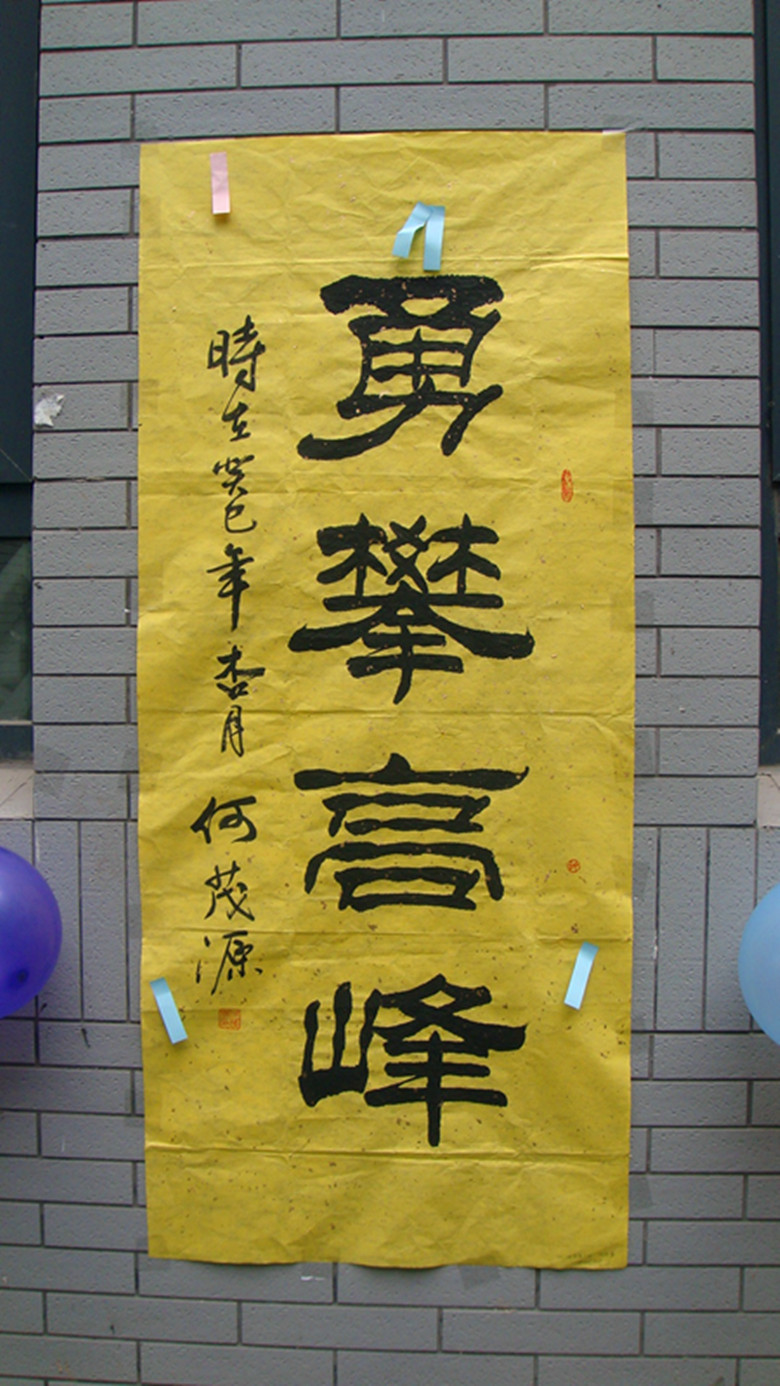 勇攀高峰
時在癸巳年杏月 何茂源